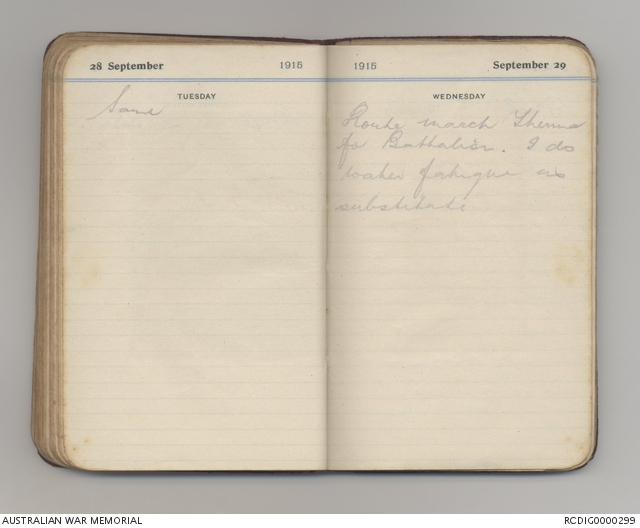 28 September 1915
TUESDAY
Same
1915 September 29
WEDNESDAY
Route march Therma
for Battalion. I do
water fatigue as
substitute
AUSTRALIAN WAR MEMORIAL
RCDIG0000299